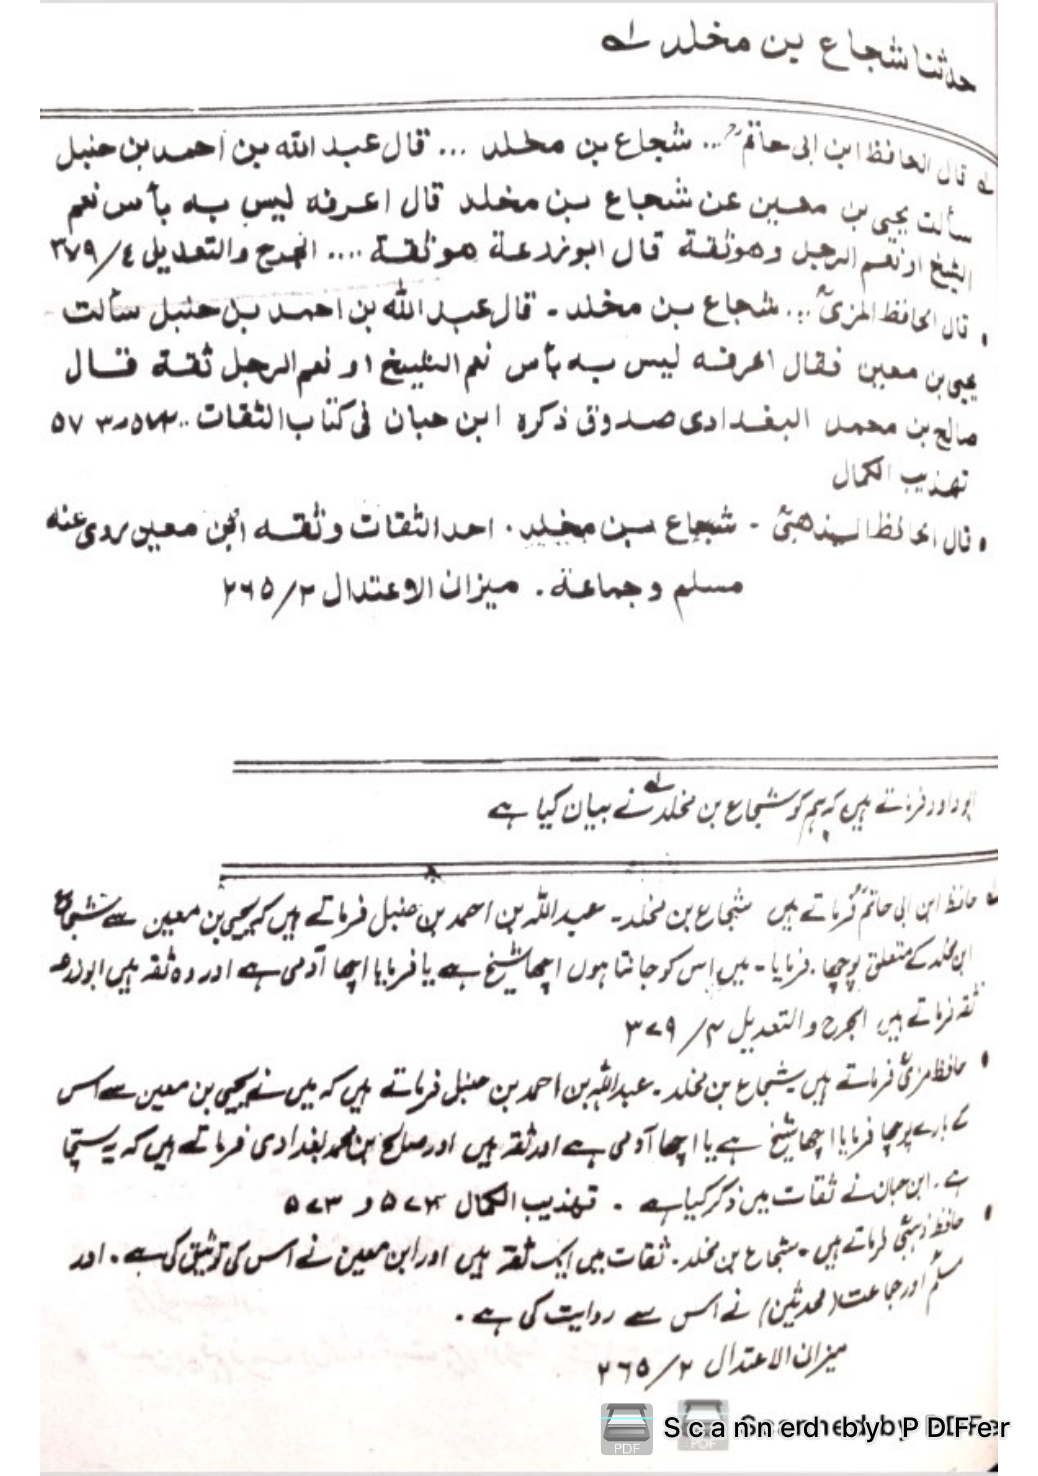 حدثنا شجاع بن مخلد لے
لے قال الحافظ ابن ابی حاتمؒ ... شجاع بن مخلد ... قال عبد الله بن احمد بن حنبل
سألت یحیی بن معین عن شجاع بن مخلد قال اعرفه لیس به بأس نعم
الشیخ او نعم الرجل وهو ثقة قال ابو زرعة هو ثقة .... الجرح والتعدیل ٤/٣٧٩
• قال الحافظ المزیؒ ... شجاع بن مخلد ۔ قال عبد الله بن احمد بن حنبل سألت
یحیی بن معین فقال اعرفه لیس به بأس نعم الشیخ او نعم الرجل ثقة قال
صالح بن محمد البغدادی صدوق ذکره ابن حبان فی کتاب الثقات ..
تهذیب الکمال
• قال الحافظ الذهبیؒ ۔ شجاع بن مخلد . احد الثقات وثقه ابن معین روی عنه
مسلم وجماعة . میزان الاعتدال ۲/۲۶۵
ابوداؤد فرماتے ہیں کہ ہم کو شجاع بن مخلد لے نے بیان کیا ہے
لے حافظ ابن ابی حاتمؒ فرماتے ہیں شجاع بن مخلد۔ عبداللہ بن احمد بن حنبل فرماتے ہیں کہ یحیی بن معین سے شجاع
ابن مخلد کے متعلق پوچھا ، فرمایا ۔ میں اس کو جانتا ہوں اچھا شیخ ہے یا فرمایا اچھا آدمی ہے اور وہ ثقہ ہیں ابوزرعہ
ثقہ فرماتے ہیں الجرح والتعدیل ۴/۳۷۹
• حافظ مزیؒ فرماتے ہیں شجاع بن مخلد ۔ عبداللہ بن احمد بن حنبل فرماتے ہیں کہ میں نے یحیی بن معین سے اس
کے بارے پوچھا فرمایا اچھا شیخ ہے یا اچھا آدمی ہے اور ثقہ ہیں اور صالح بن محمد بغدادی فرماتے ہیں کہ یہ سچا
ہے ۔ ابن حبان نے ثقات میں ذکر کیا ہے ۔ تهذیب الکمال ۵۷۴ و ۵۷۳
• حافظ ذہبیؒ فرماتے ہیں ۔ شجاع بن مخلد ۔ ثقات میں ایک ثقہ ہیں اور ابن معین نے اس کی توثیق کی ہے ۔ اور
مسلمؒ اور جماعت (محدثین) نے اس سے روایت کی ہے ۔
میزان الاعتدال ۲/۲۶۵
Scanned by PDFer